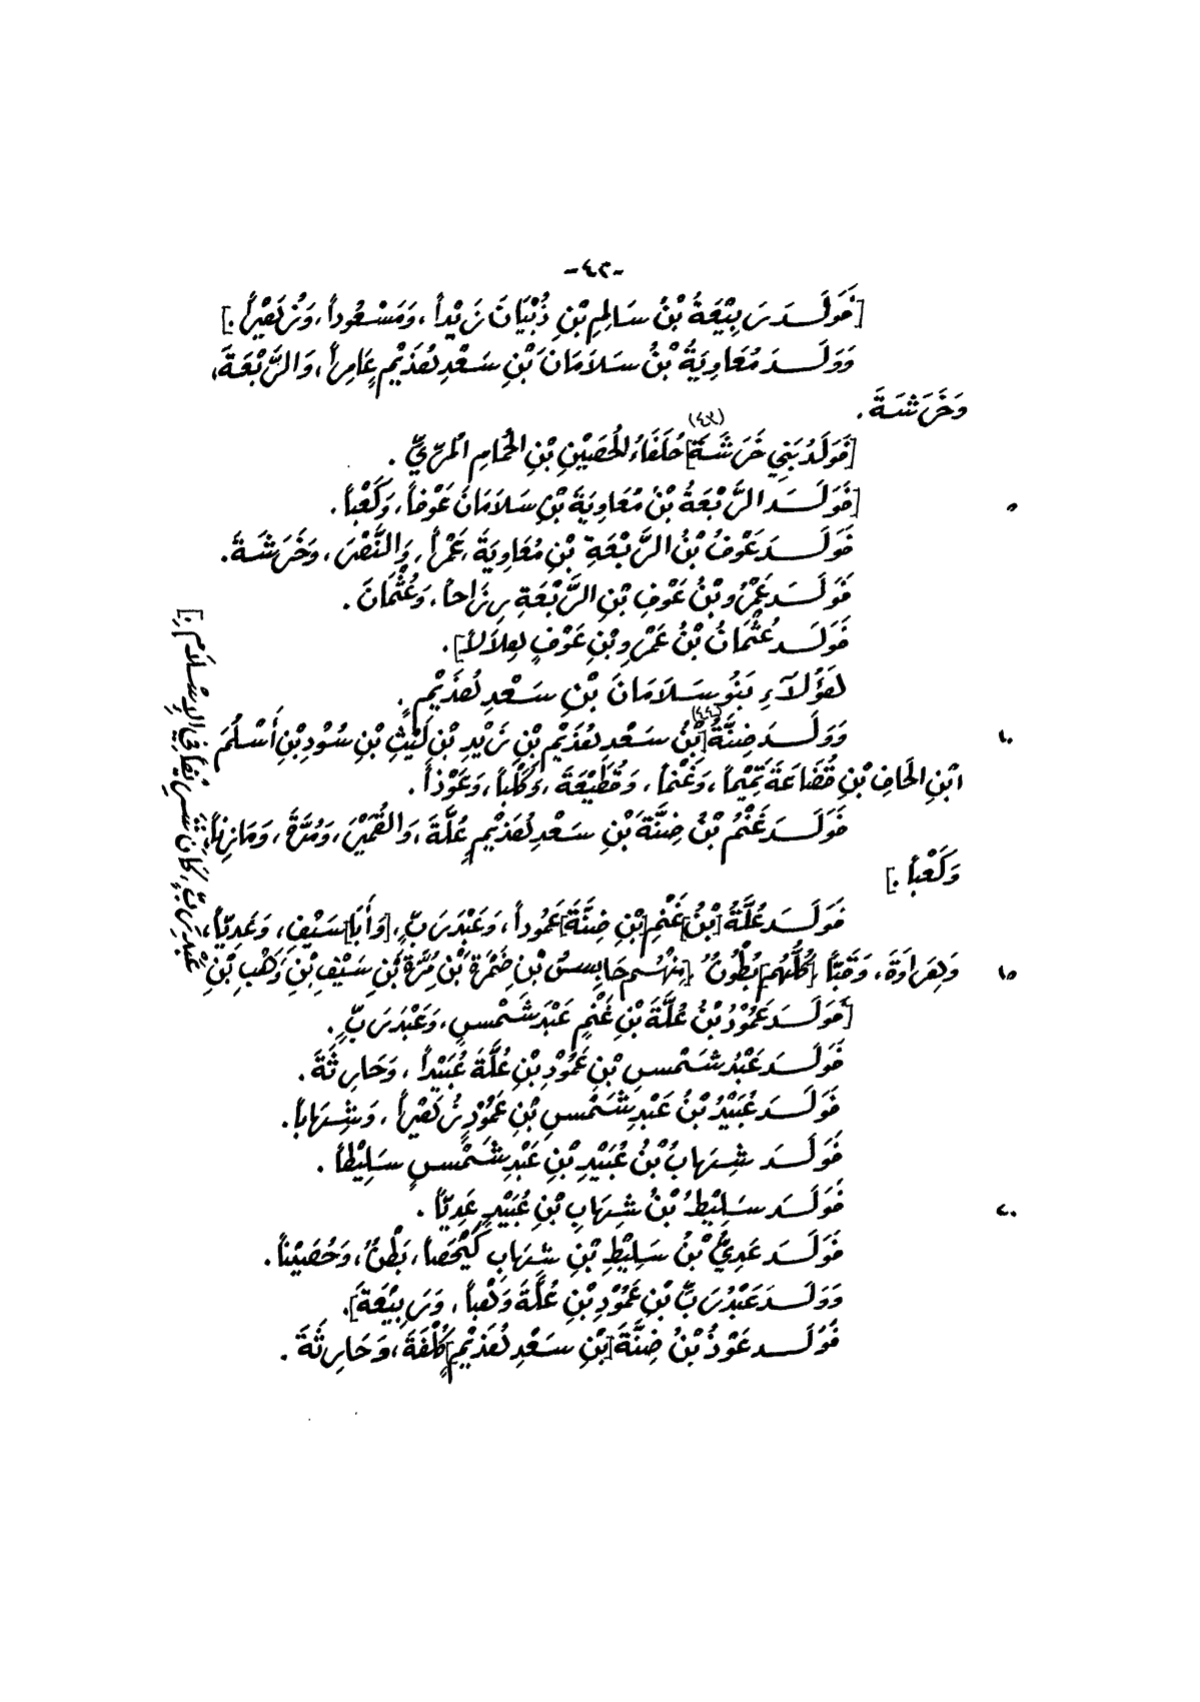 -٤٢-
[فَوَلَدَ رَبِيْعَةُ بْنُ سَالِمِ بْنِ ذُبْيَانَ زَيْداً، وَمَسْعُوداً، وَنُصَيْراً.]
وَوَلَدَ مُعَاوِيَةُ بْنُ سَلاَمَانَ بْنِ سَعْدِ هُذَيْمٍ عَامِراً، وَالرَّبْعَةَ،
وَخَرَشَةَ.
(٤٣)
[فَوَلَدُ بَنِي خَرَشَةَ] حُلَفَاءُ الحُصَيْنِ بْنِ الحُمَامِ المُرِّيِّ.
[فَوَلَدَ الرَّبْعَةُ بْنُ مُعَاوِيَةَ بْنِ سَلاَمَانَ عَوْفاً، وَكَعْباً.
٥
فَوَلَدَ عَوْفُ بْنُ الرَّبْعَةِ بْنِ مُعَاوِيَةَ، عَمْراً، وَالنَّضْرَ، وَخَرَشَةَ.
فَوَلَدَ عَمْرُو بْنُ عَوْفِ بْنِ الرَّبْعَةِ رِزَاحاً، وَعُثْمَانَ.
فَوَلَدَ عُثْمَانُ بْنُ عَمْرِو بْنِ عَوْفٍ هِلاَلاً].
هَؤُلاَءِ بَنُو سَلاَمَانَ بْنِ سَعْدِ هُذَيْمٍ.
(٤٤)
وَوَلَدَ ضِنَّةُ [بْنُ سَعْدِ هُذَيْمِ بْنِ زَيْدِ بْنِ لَيْثِ بْنِ سُوْدِ بْنِ أَسْلُمَ
١٠
ابْنِ الحَافِ بْنِ قُضَاعَةَ تَمِيْماً، وَغَنْماً، وَقُطَيْعَةَ، وَكَلْباً، وَعَوْذاً.
فَوَلَدَ غَنْمُ بْنُ ضِنَّةَ بْنِ سَعْدِ هُذَيْمٍ عُلَّةَ، وَالقُمَيْنَ، وَمُرَّةَ، وَمَازِناً،
وَكَعْباً.]
فَوَلَدَ عُلَّةُ [بْنُ] غَنْمِ [بْنِ ضِنَّةَ] عَمُوداً، وَعَبْدَ رَبٍّ، [وَأَبَا] سَيْفٍ، وَعَدِيّاً،
وَهِرَاوَةَ، وَقَبّاً [كُلُّهُم] بُطُونٌ [مِنْهُم حَابِسُ بْنِ ضَمْرَةَ بْنِ مُرَّةَ بْنِ سَيْفِ بْنِ وَهْبِ بْنِ
١٥
عَبْدِ رَبٍّ، كَانَ شَرِيْفاً فِي الإِسْلاَمِ.]
[فَوَلَدَ عَمُوْدُ بْنُ عُلَّةَ بْنِ غَنْمٍ عَبْدَ شَمْسٍ، وَعَبْدَ رَبٍّ.
فَوَلَدَ عَبْدُ شَمْسِ بْنِ عَمُوْدِ بْنِ عُلَّةَ عُبَيْداً، وَحَارِثَةَ.
فَوَلَدَ عُبَيْدُ بْنُ عَبْدِ شَمْسِ بْنِ عَمُوْدٍ نُصَيْراً، وَشِهَاباً.
فَوَلَدَ شِهَابُ بْنُ عُبَيْدِ بْنِ عَبْدِ شَمْسٍ سَلِيْطاً.
فَوَلَدَ سَلِيْطُ بْنُ شِهَابِ بْنِ عُبَيْدٍ عَدِيّاً.
٢٠
فَوَلَدَ عَدِيُّ بْنُ سَلِيْطِ بْنِ شِهَابٍ بَطْنٌ، وَحُصَيْناً.
وَوَلَدَ عَبْدُ رَبِّ بْنِ عَمُوْدِ بْنِ عُلَّةَ وَهْباً، وَرَبِيْعَةَ].
فَوَلَدَ عَوْذُ بْنُ ضِنَّةَ [بْنِ سَعْدِ هُذَيْمٍ] كُلْفَةَ، وَحَارِثَةَ.